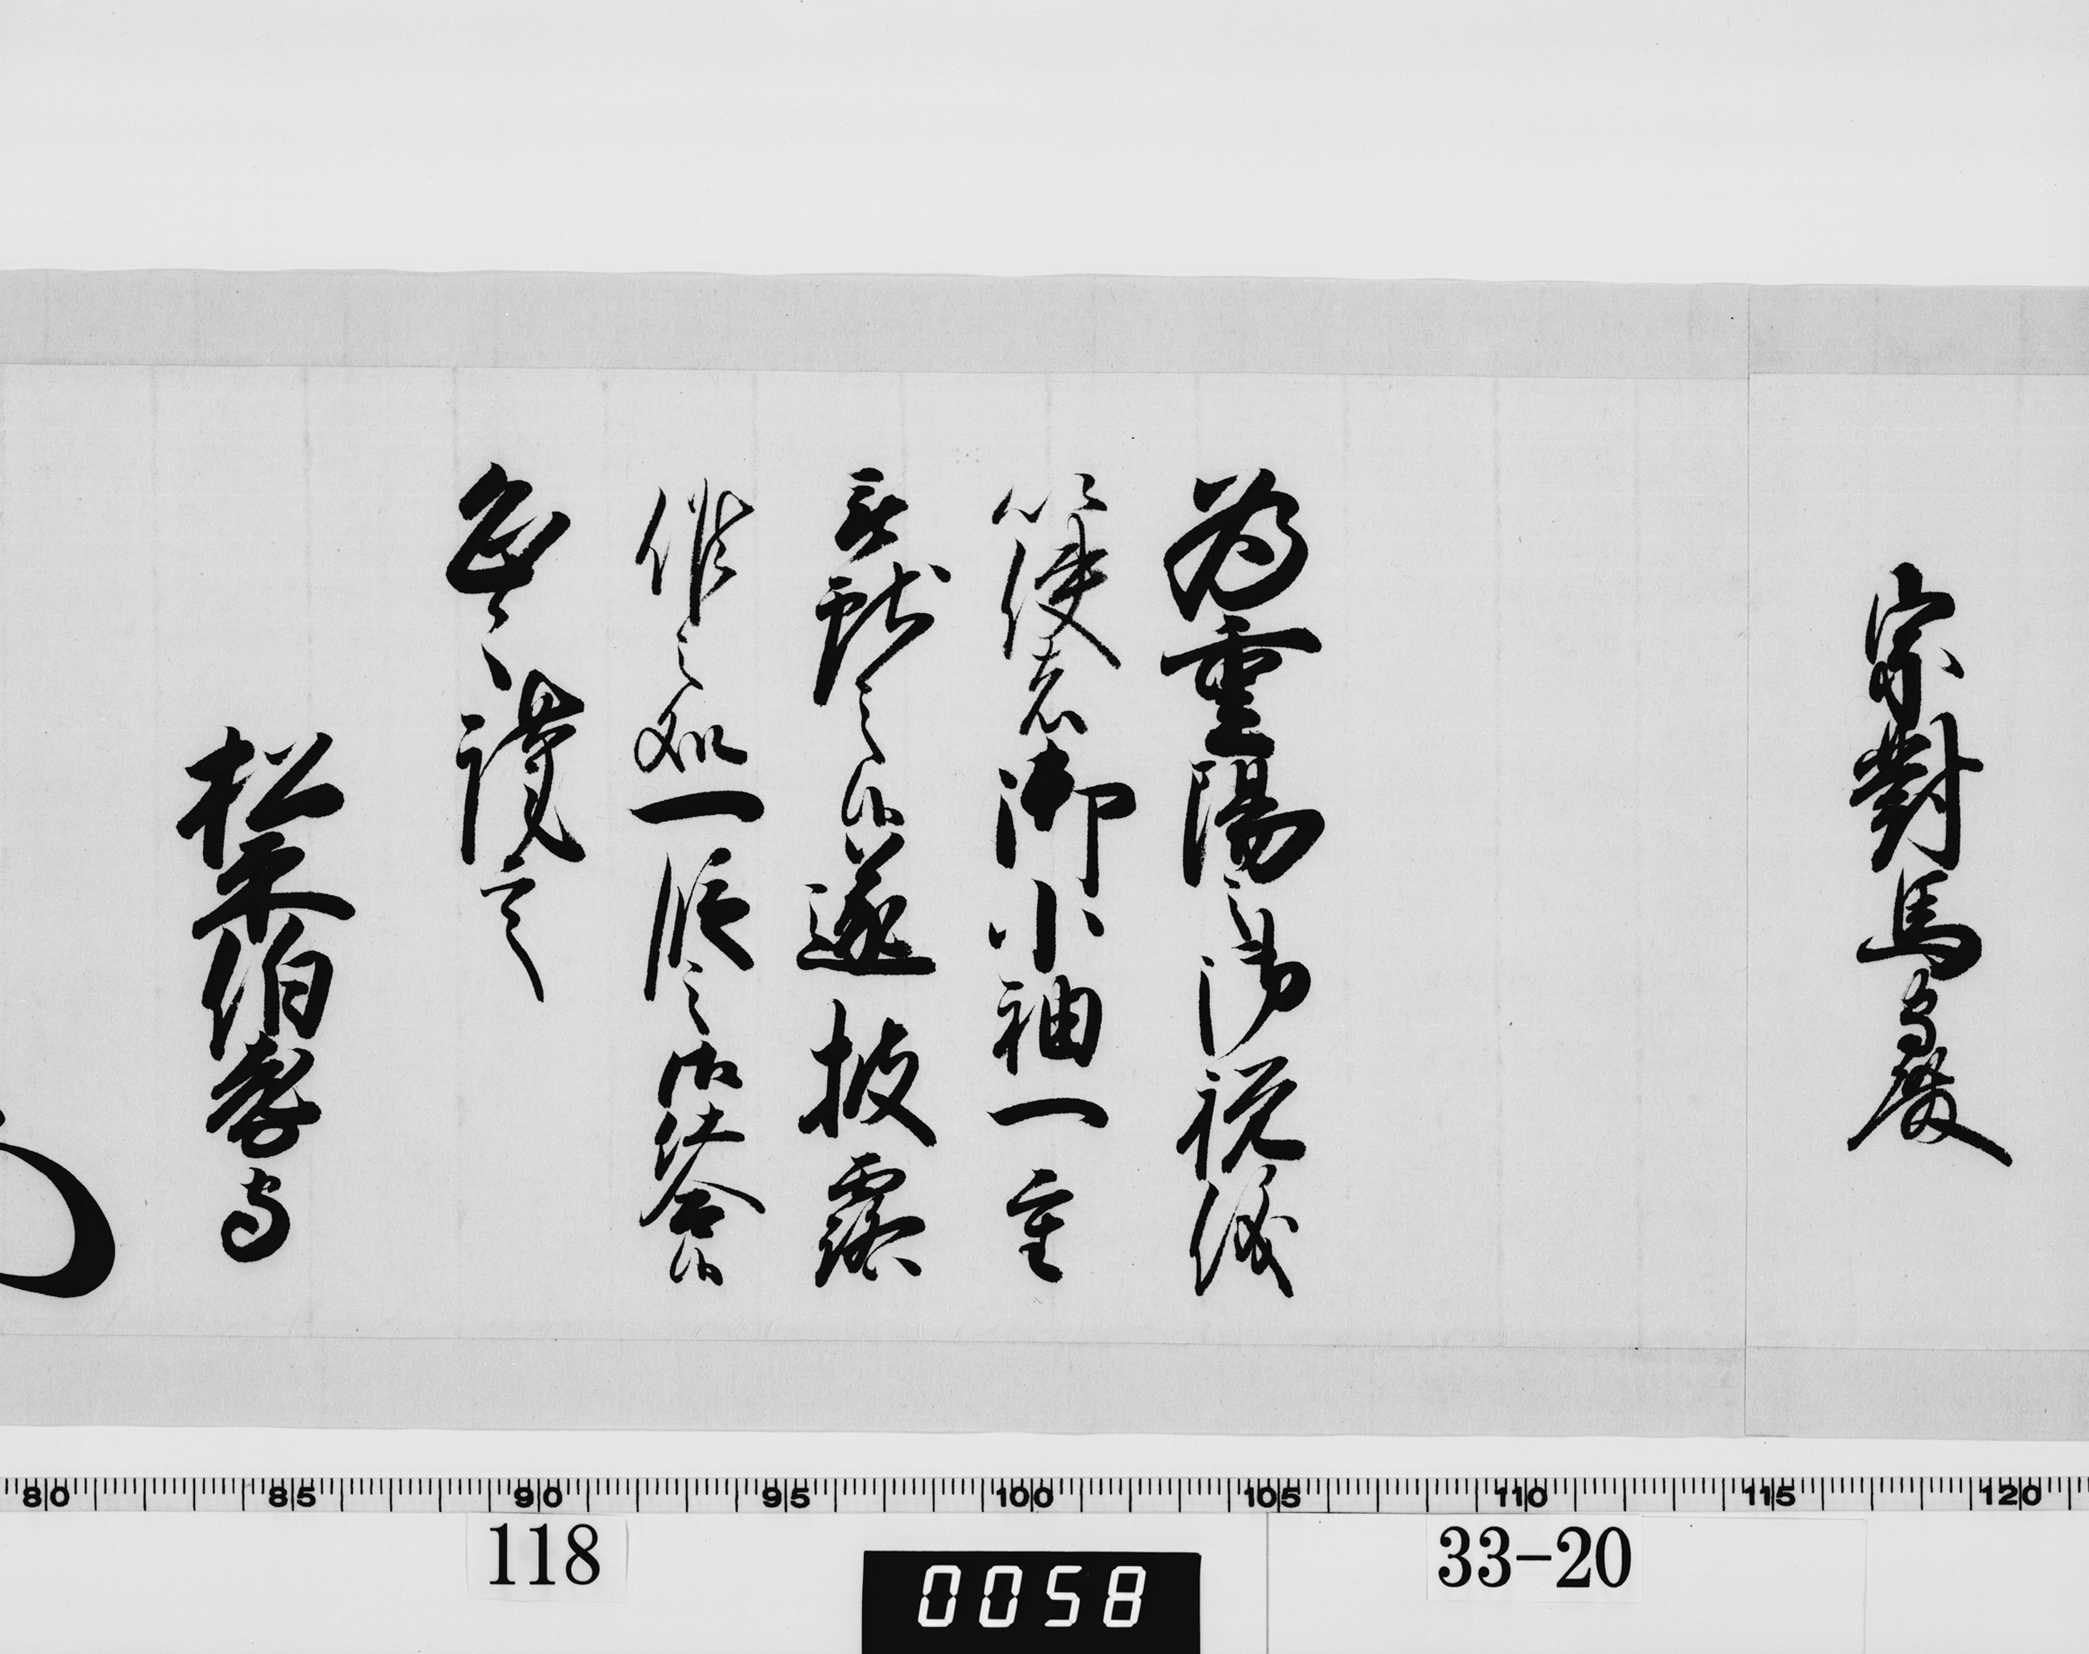 宗對馬守殿
為重陽之御祝儀
以使者御小袖一重
被獻之候遂披露
候之処一段之御仕合候
恐々謹言
松平伯耆守
80 85 90 95 100 105 110 115 120
118
0058
33-20